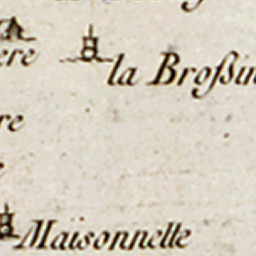 ere
la Broßin
re
e
Maisonnelle